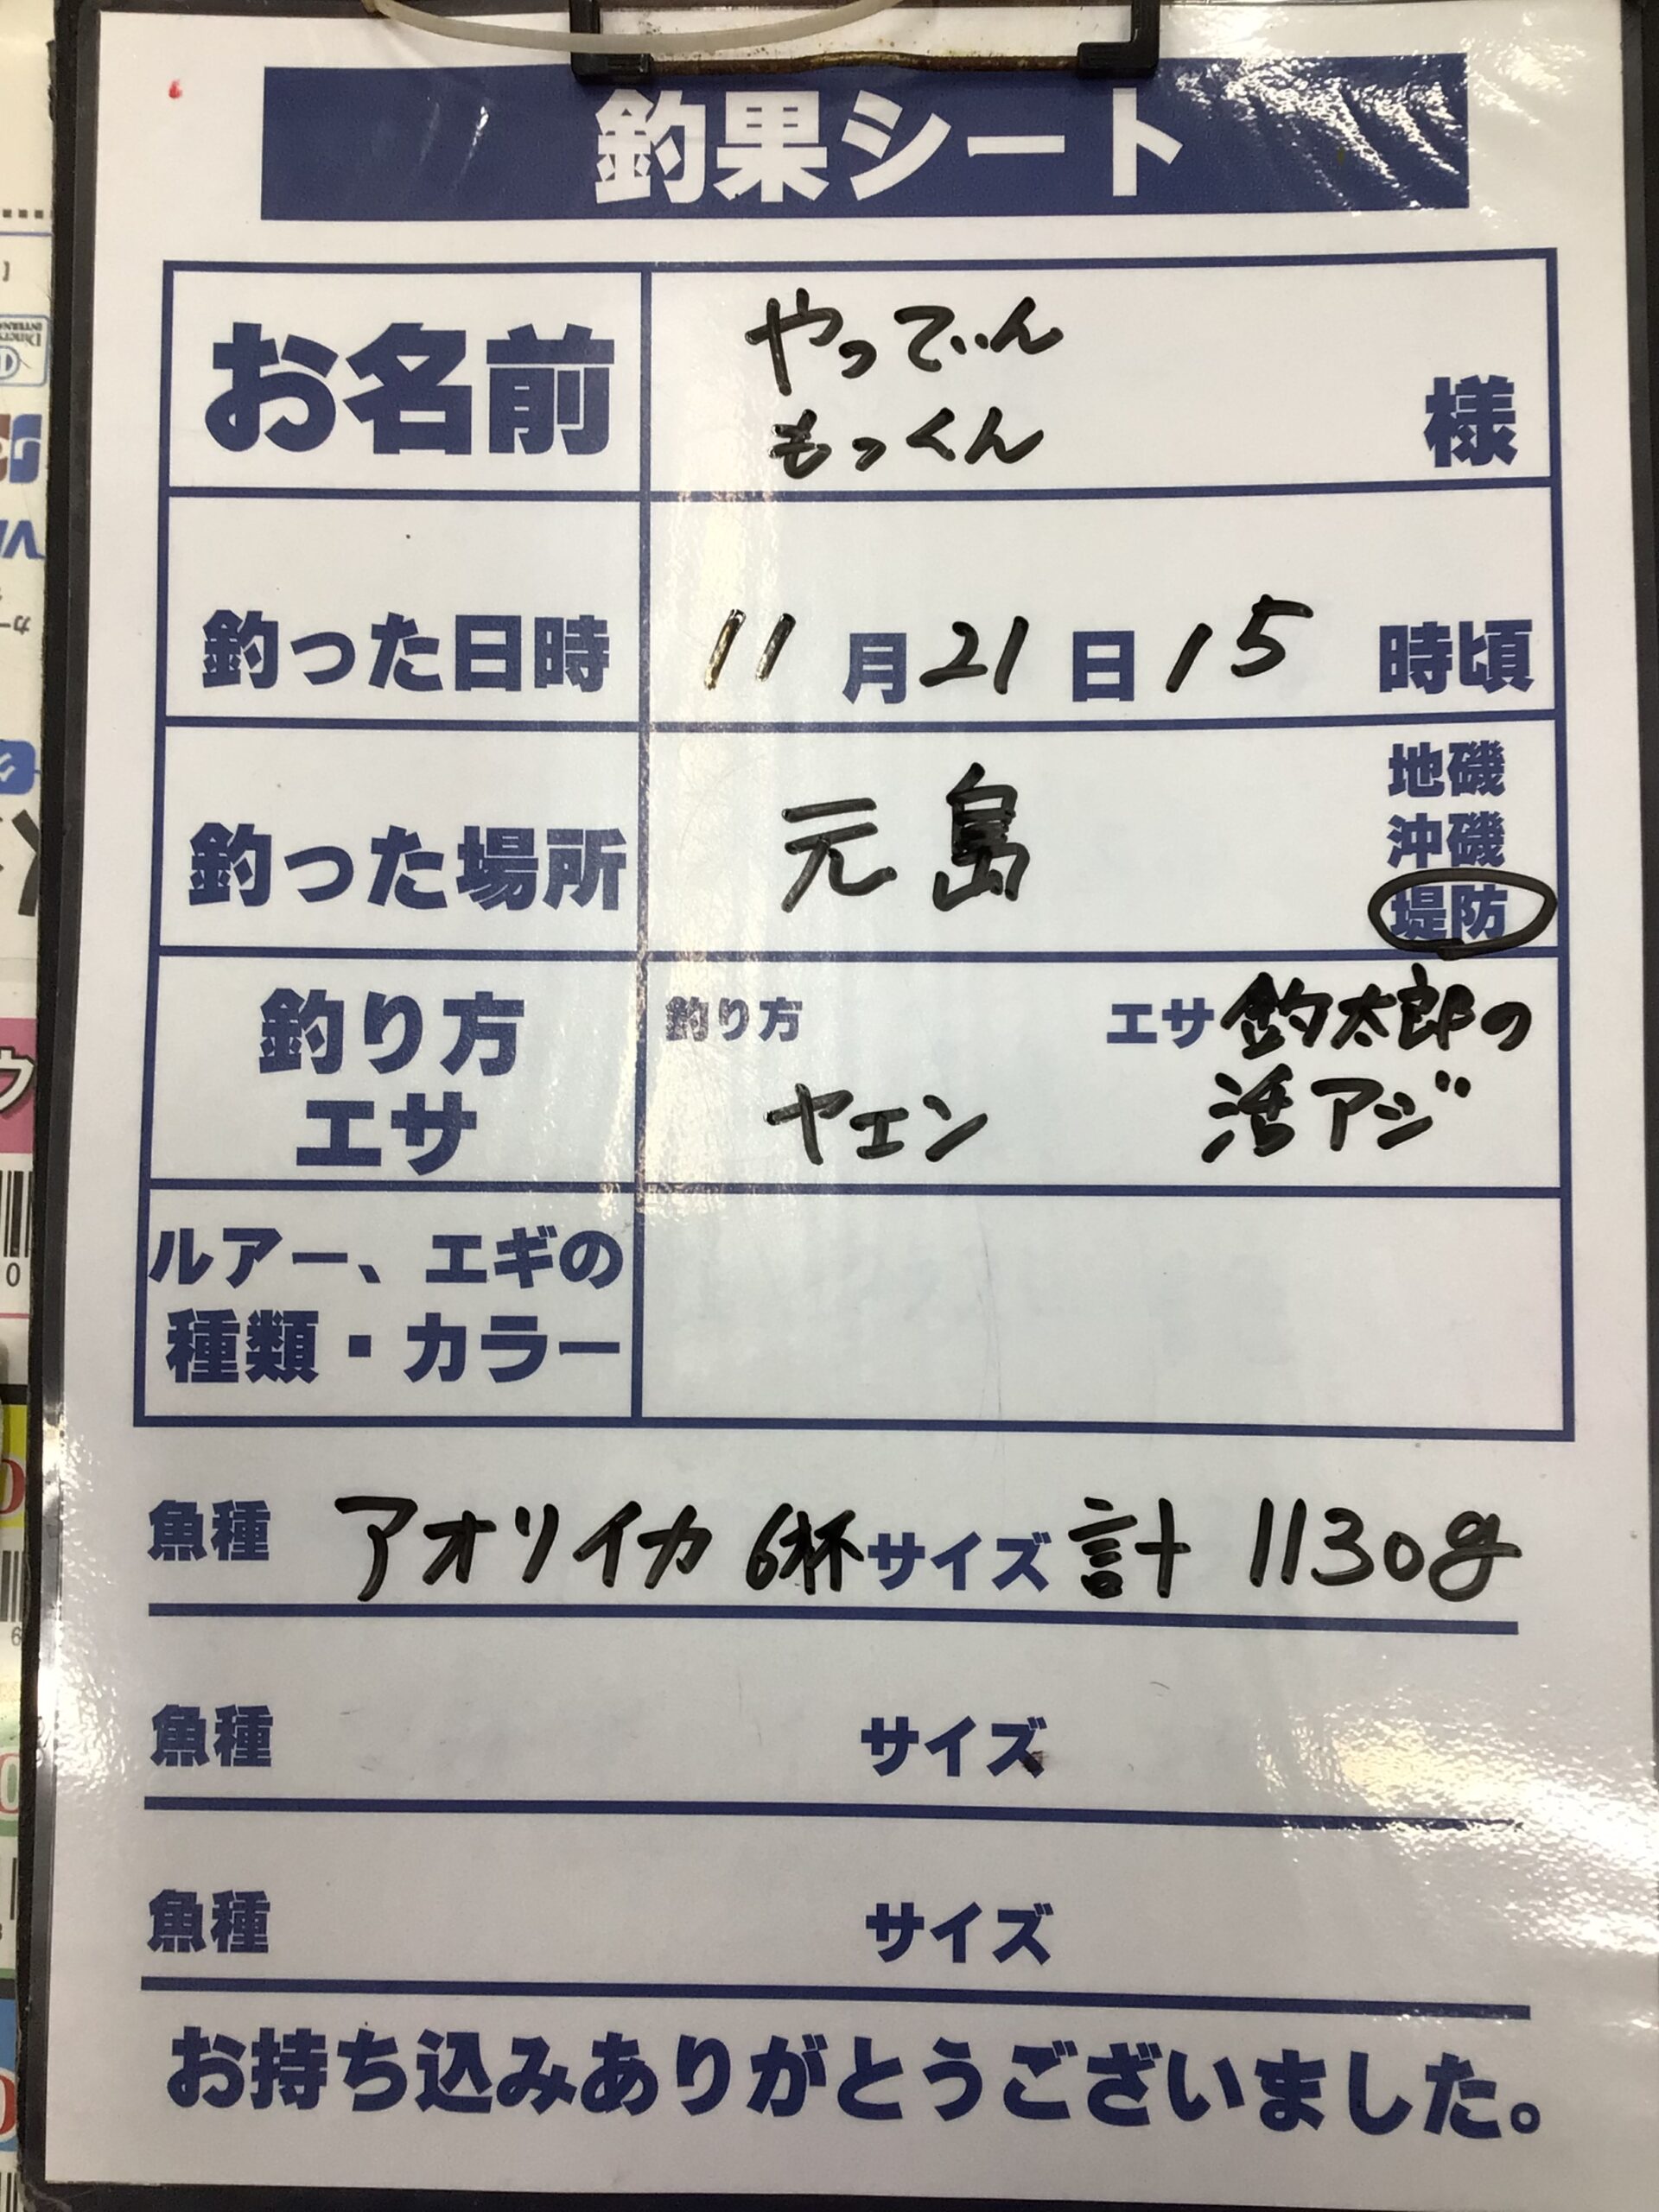 釣果シート
お名前
やってぃん
もっくん
様
釣った日時
11月21日15時頃
釣った場所
元島
地磯
沖磯
堤防
釣り方
エサ
釣り方
ヤエン
エサ 釣太郎の
活アジ
ルアー、エギの
種類・カラー
魚種 アオリイカ 6杯 サイズ 計 1130g
魚種 サイズ
魚種 サイズ
お持ち込みありがとうございました。